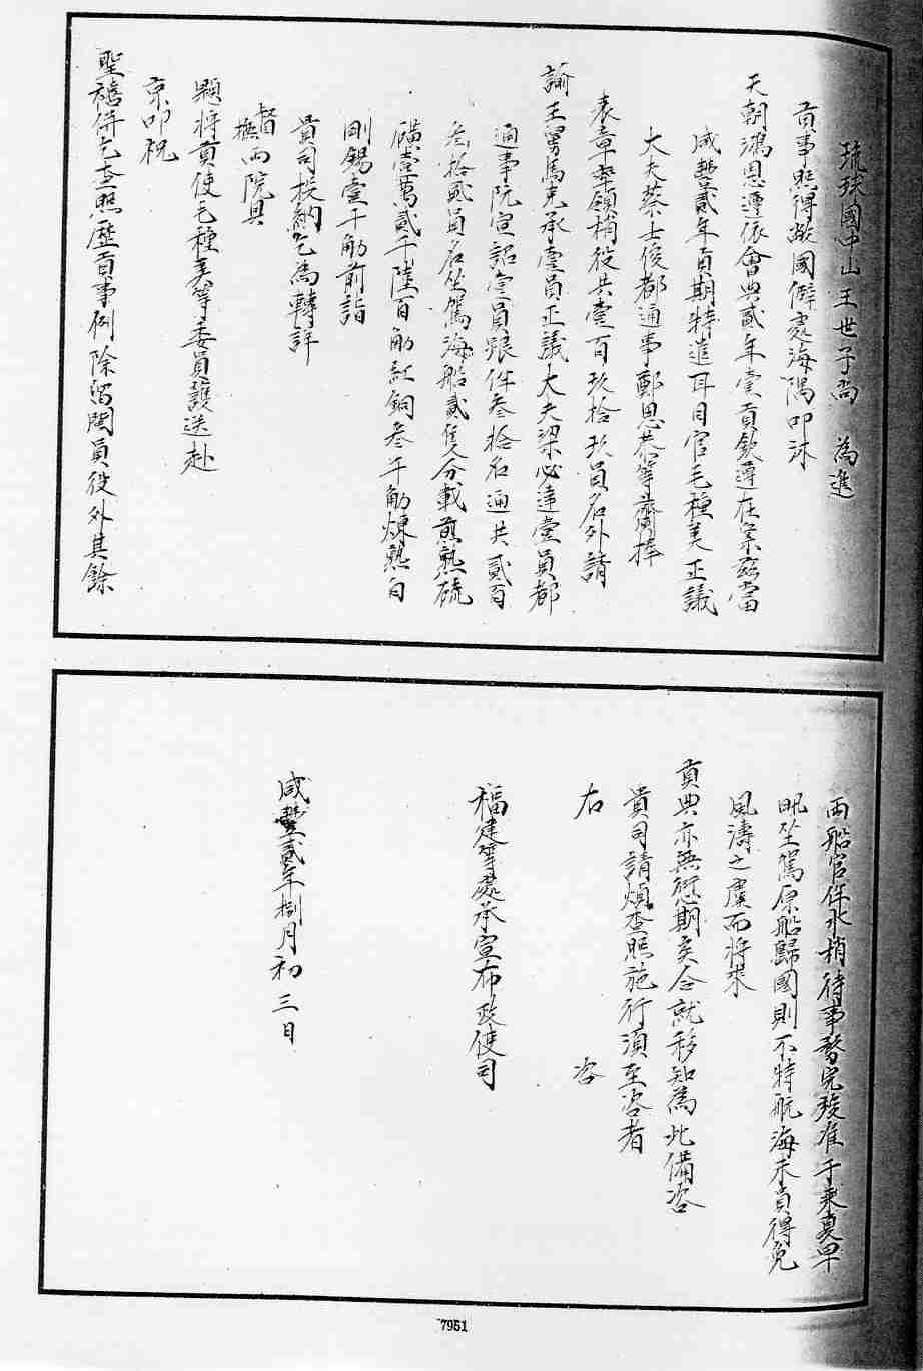 琉球國中山王世子尚　為進
貢事照得敝國僻處海隅叩沐
天朝鴻恩遵依會典貳年壹貢欽遵在案茲當
咸豐貳年貢期特遣耳目官毛種美正議
大夫蔡士俊都通事鄭恩恭等齎捧
表章率領梢役共壹百玖拾玖員名外請
諭王舅馬克承壹員正議大夫梁必達壹員都
通事阮宣詔壹員跟伴叁拾名通共貳百
叁拾貳員名坐駕海船貳隻分載煎熟硫
磺壹萬貳千陸百觔紅銅叁千觔煉熟白
剛錫壹千觔前詣
貴司投納乞為轉詳
督
撫兩院具
題將貢使毛種美等委員護送赴
京叩祝
聖禧併乞查照歷貢事例除留閩員役外其餘
兩船官伴水梢待事務完竣准于來夏早
汛坐駕原船歸國則不特航海末員得免
風濤之虞而將來
貢典亦無愆期矣合就移知為此備咨
貴司請煩查照施行須至咨者
右　咨
福建等處承宣布政使司
咸豐貳年捌月初三日
7951